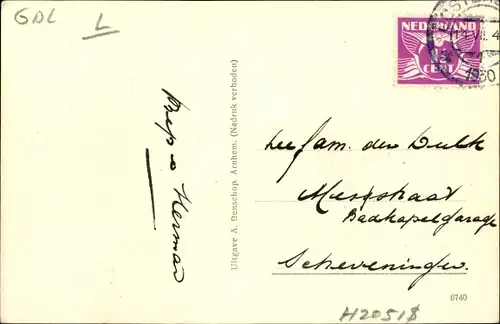 GDL L
NEDERLAND
1½
CENT
14 VII 4
1930
Bep & Herman
Uitgave A. Benschop, Arnhem. (Nadruk verboden)
fam. den Dulk
Badkapelgarage
Scheveningen.
6740
H20518